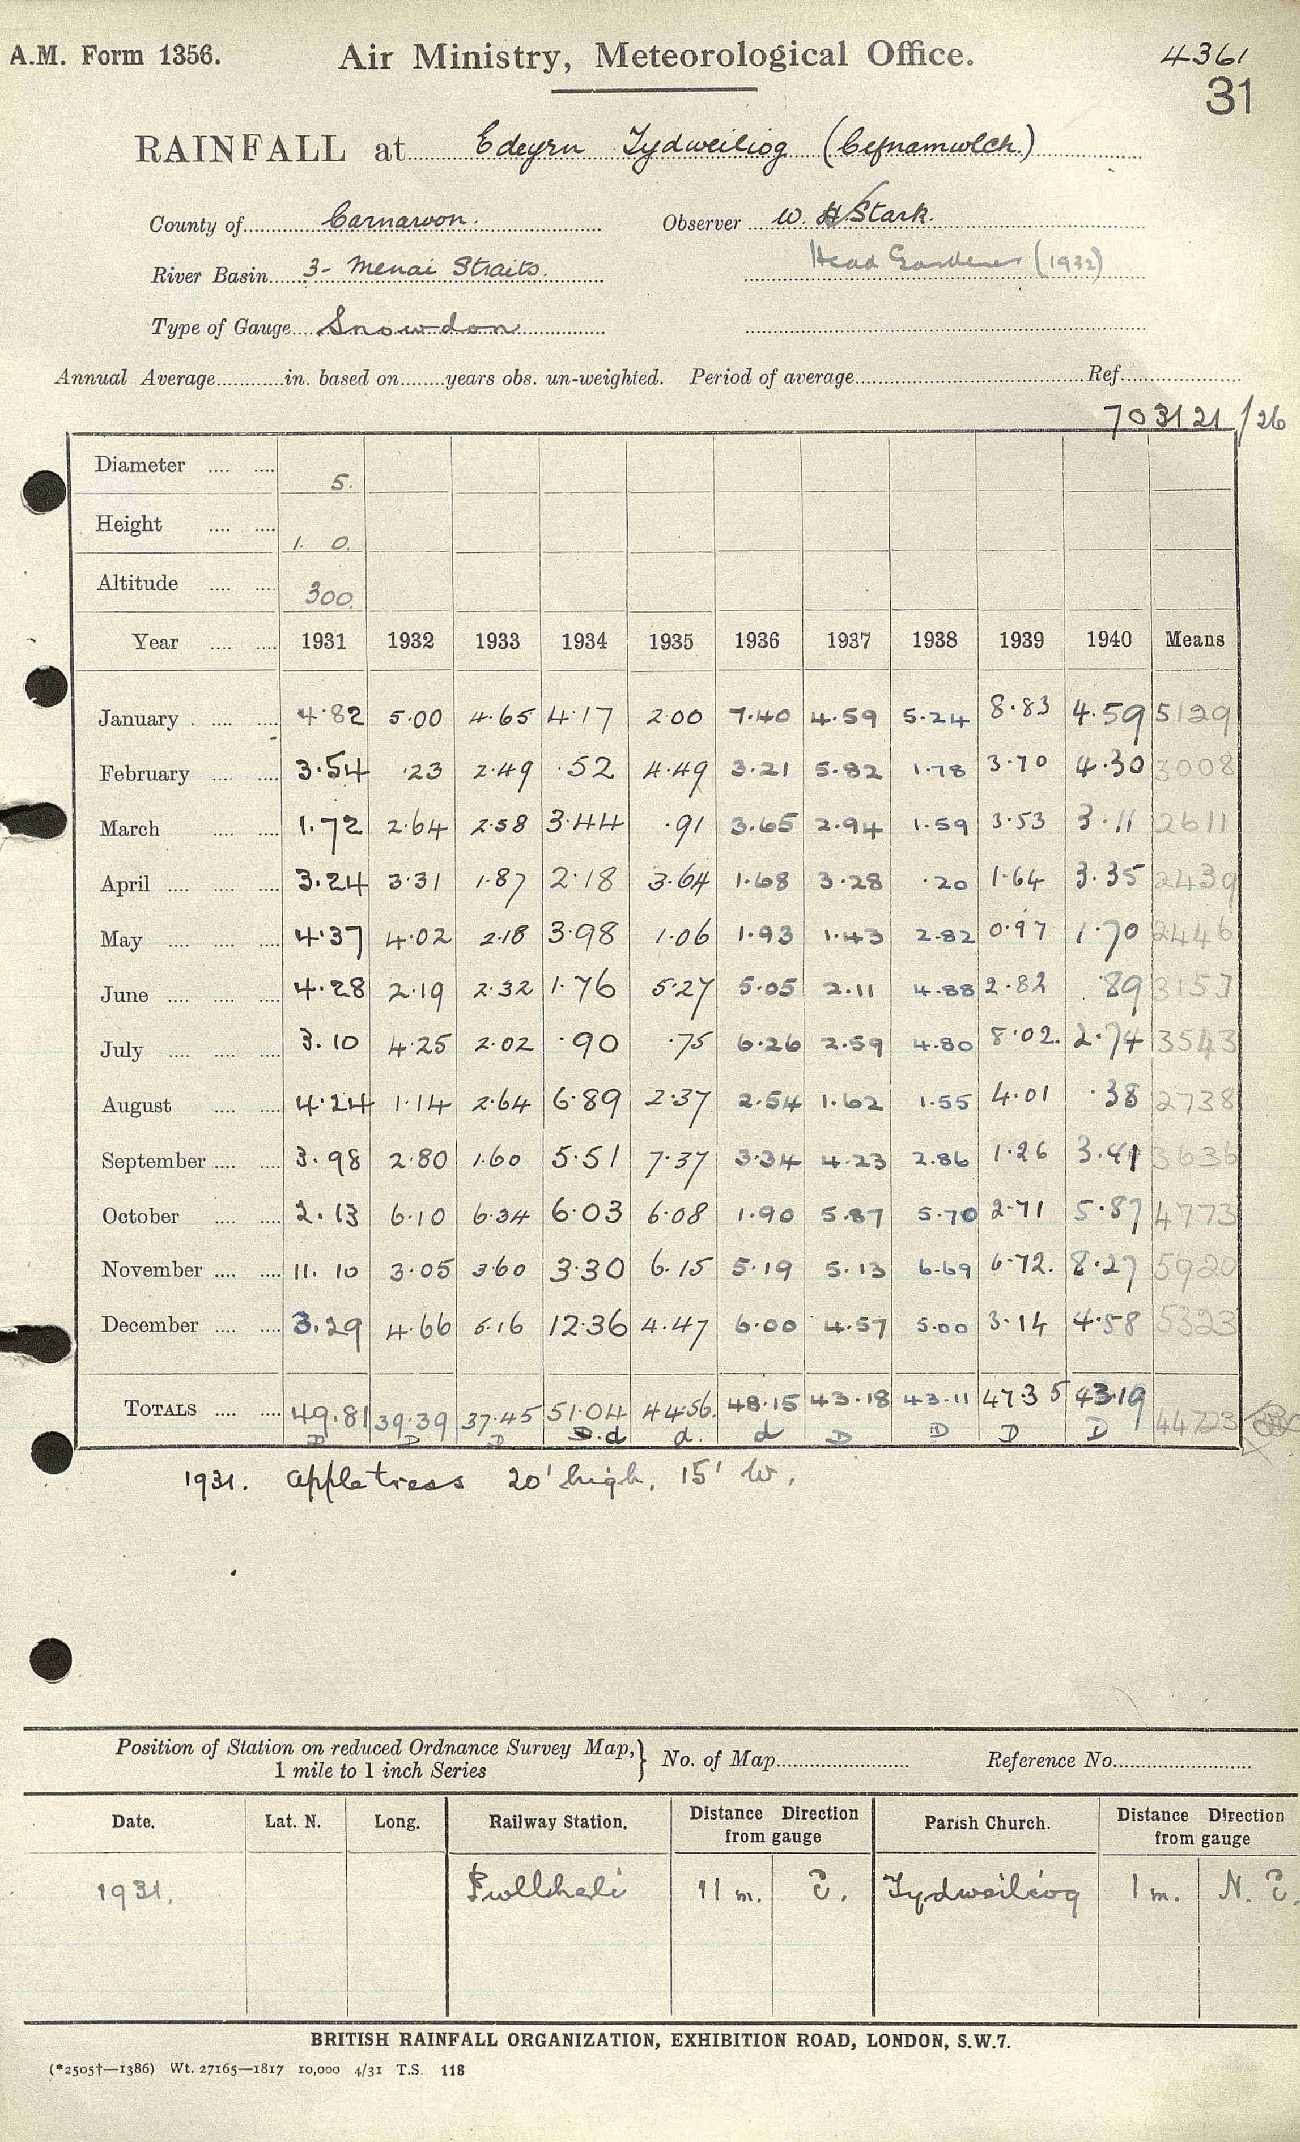 A.M. Form 1356. Air Ministry, Meteorological Office. 4361
31
RAINFALL at Edeyrn Tydweiliog (Cefnamwlch)
County of Carnarvon. Observer W. H Stark.
River Basin 3- Menai Straits. Head Gardener (1932)
Type of Gauge Snowdon
Annual Average in. based on years obs. un-weighted. Period of average Ref
703121/26
Diameter 5.
Height 1. 0.
Altitude 300.
Year 1931 1932 1933 1934 1935 1936 1937 1938 1939 1940 Means
January 4.82 5.00 4.65 4.17 2.00 7.40 4.59 5.24 8.83 4.59 5129
February 3.54 .23 2.49 .52 4.49 3.21 5.82 1.78 3.70 4.30 3008
March 1.72 2.64 2.58 3.44 .91 3.65 2.94 1.59 3.53 3.11 2611
April 3.24 3.31 1.87 2.18 3.64 1.68 3.28 .20 1.64 3.35 2439
May 4.37 4.02 2.18 3.98 1.06 1.93 1.43 2.82 0.97 1.70 2446
June 4.28 2.19 2.32 1.76 5.27 5.05 2.11 4.88 2.82 .89 3157
July 3.10 4.25 2.02 .90 .75 6.26 2.59 4.80 8.02. 2.74 3543
August 4.24 1.14 2.64 6.89 2.37 2.54 1.62 1.55 4.01 .38 2738
September 3.98 2.80 1.60 5.51 7.37 3.34 4.23 2.86 1.26 3.41 3636
October 2.13 6.10 6.34 6.03 6.08 1.90 5.87 5.70 2.71 5.87 4773
November 11.10 3.05 3.60 3.30 6.15 5.19 5.13 6.69 6.72. 8.27 5920
December 3.29 4.66 5.16 12.36 4.47 6.00 4.57 5.00 3.14 4.58 5323
TOTALS 49.81 39.39 37.45 51.04 44.56. 48.15 43.18 43.11 47.35 43.19 44723
D D D D.d d. d D D D D
1931. appletrees 20' high, 15' W.
Position of Station on reduced Ordnance Survey Map, } No. of Map Reference No.
1 mile to 1 inch Series
Date. Lat. N. Long. Railway Station. Distance Direction from gauge Parish Church. Distance Direction from gauge
1931. Pwllheli 11 m. E. Tydweiliog 1 m. N. E.
BRITISH RAINFALL ORGANIZATION, EXHIBITION ROAD, LONDON, S.W.7.
(*2505†—1386) Wt. 27165—1817 10,000 4/31 T.S. 118